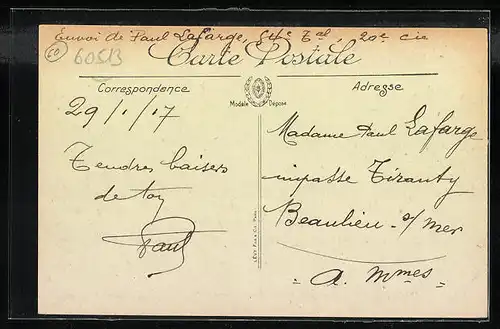 Envoi de Paul Lafarge, 20e cie
60
60513
Carte Postale
Correspondance
Modèle Déposé
Adresse
29/1/17
Tendres baisers
de ton
Paul
Madame Paul Lafarge
impasse Tiranty
Beaulieu s/ mer
A. Mmes